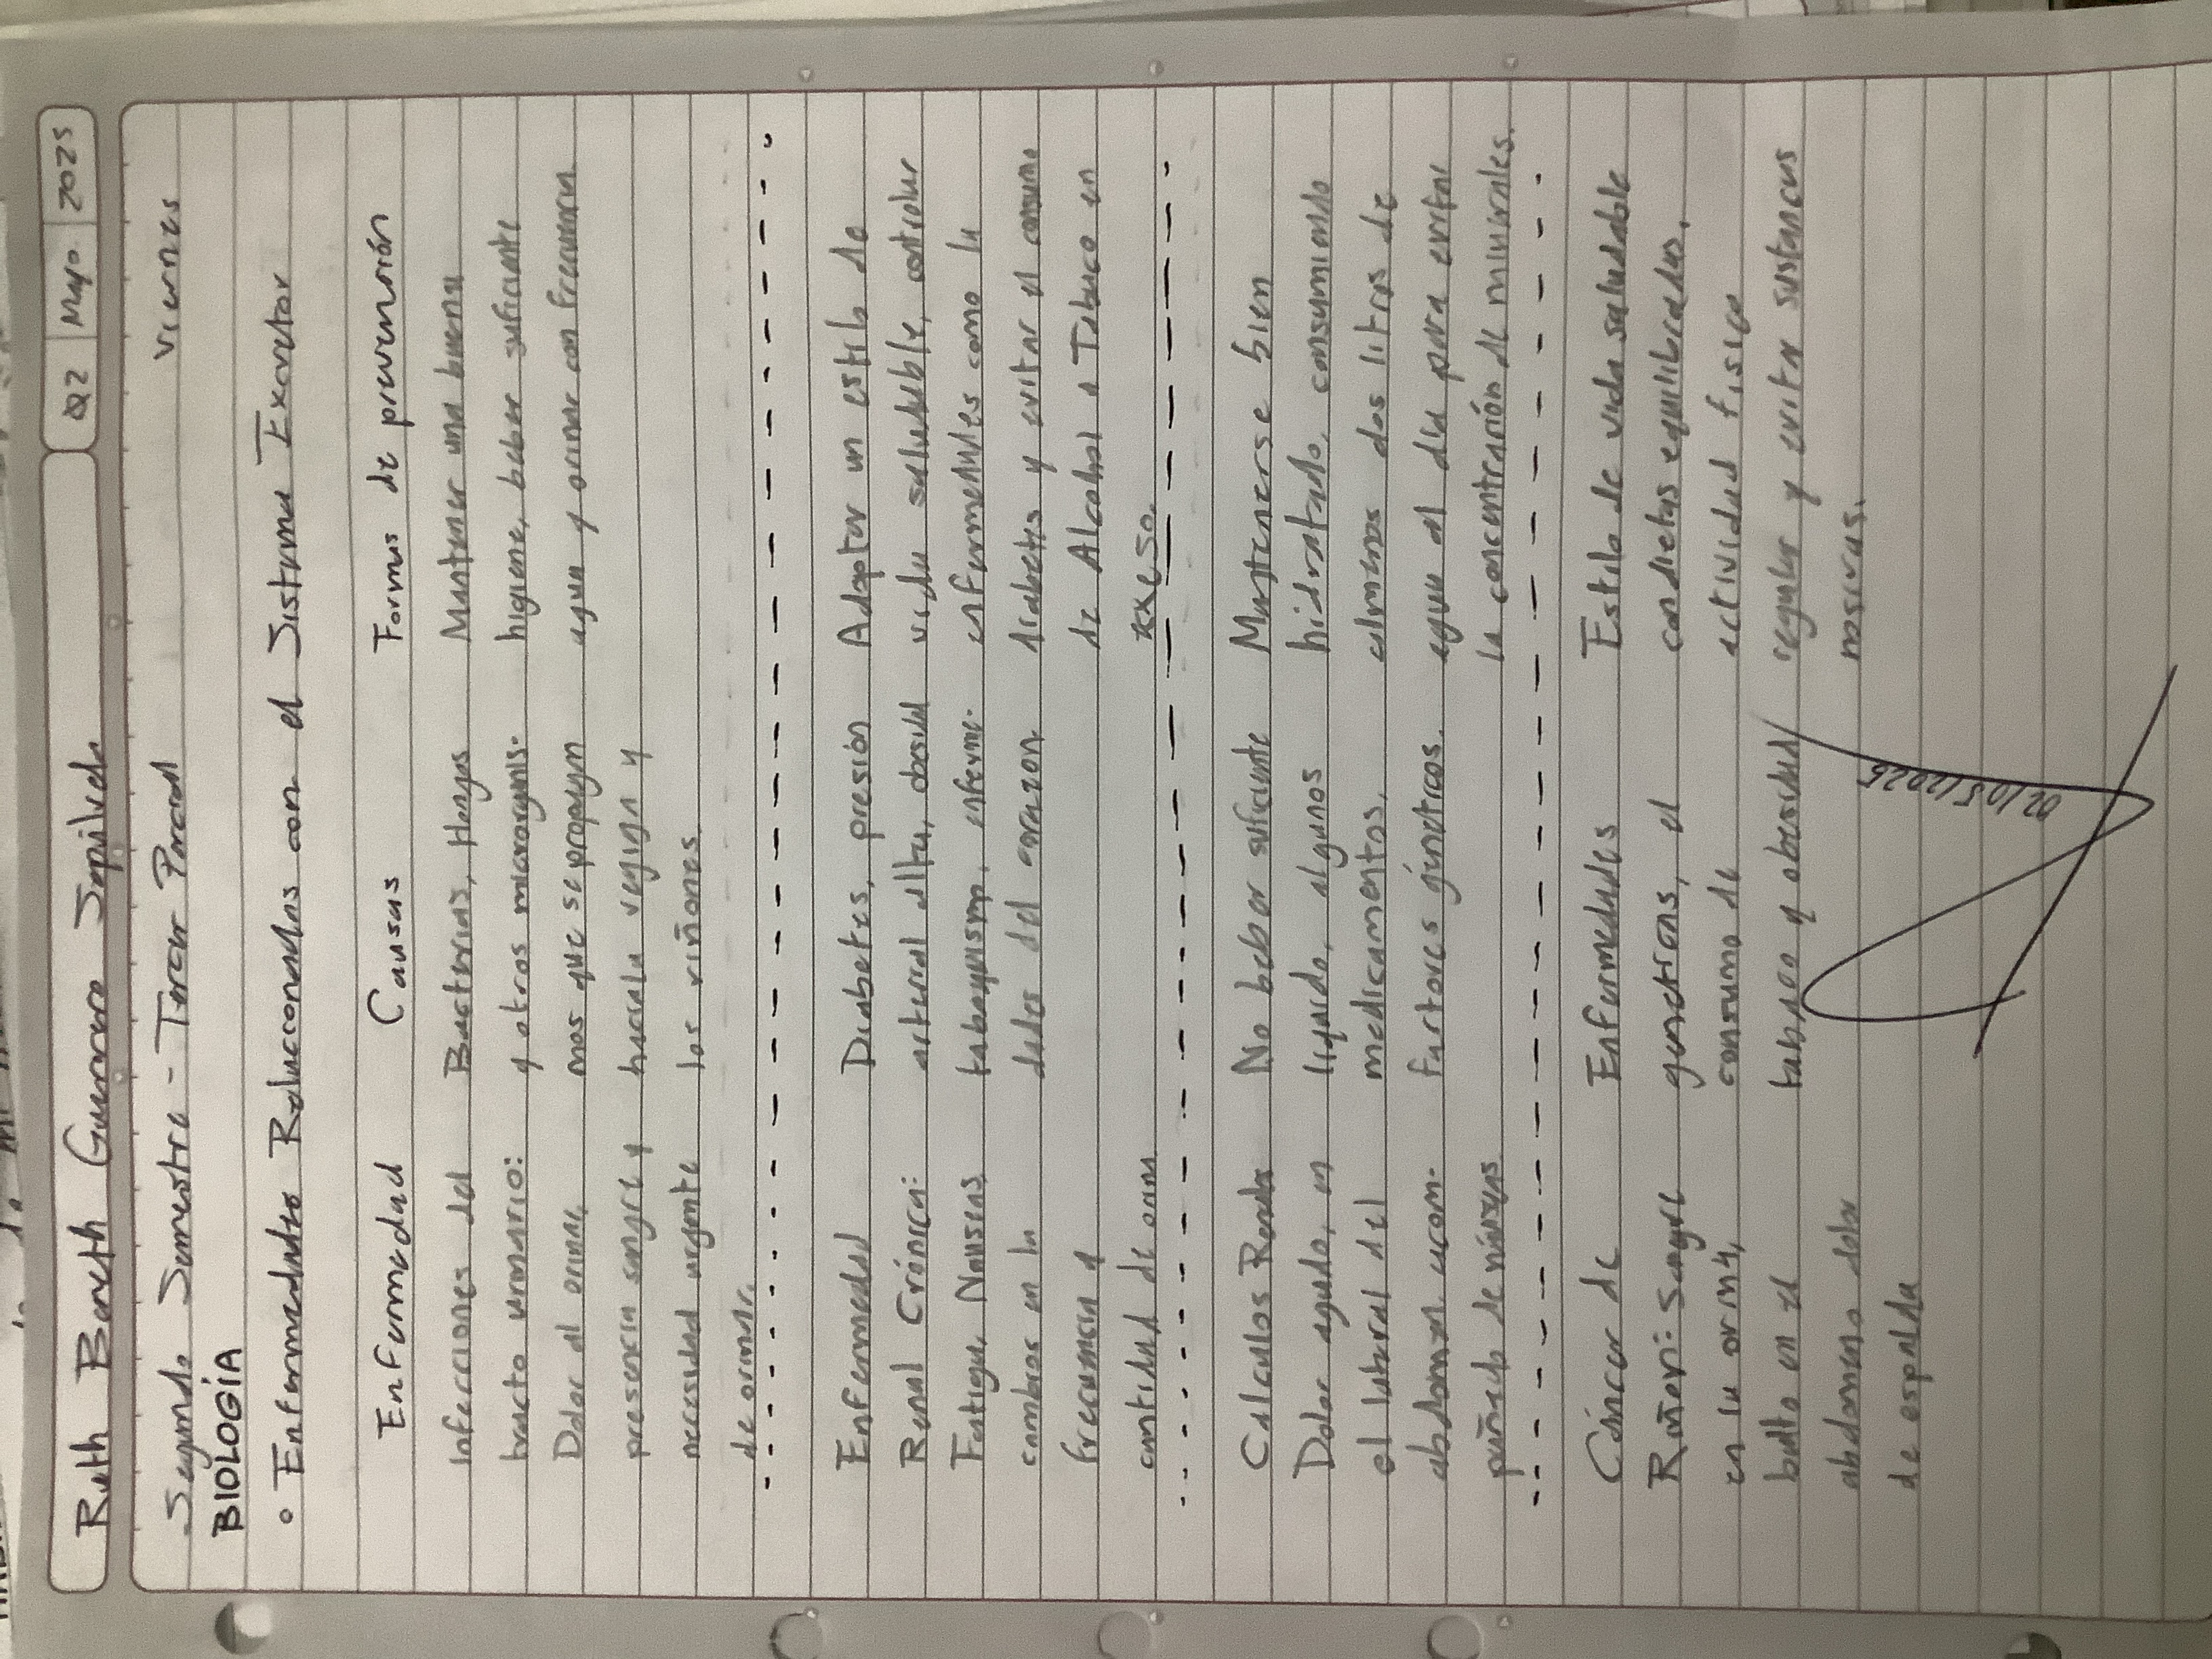 Ruth Baneth Guerrero Sepulveda 02 Mayo 2025
Segundo Semestre - Tercer Parcial Viernes
BIOLOGÍA
• Enfermedades Relaccionadas con el Sistema Excretor
Enfermedad Causas Formas de prevención
Infecciones del Bacterias, Hongos Mantener una buena
tracto urinario: y otros microrganis- higiene, beber suficiente
Dolor al orinar, mos que se propagan agua y orinar con frecuencia
presencia sangre y hacia la vegiga y
necesidad urgente los riñones.
de orinar.
Enfermedad Diabetes, presión Adoptar un estilo de
Renal Crónica: arterial alta, obesidad vida saludable, controlar
Fatiga, Nauseas tabaquismo, enferme- enfermedades como la
cambios en la dades del corazon diabetes y evitar el consumo
frecuencia y de Alcohol o Tabaco en
cantidad de orina exceso.
Calculos Renales No beber suficiente Mantenerse bien
Dolor agudo, en liquido, algunos hidratado, consumiendo
el lateral del medicamentos, almenos dos litros de
abdomen acom- factores géneticos. agua al día para evitar
pañado de náuseas la concentración de minerales.
Cáncer de Enfermedades Estilo de vida saludable
Riñon: Sangre geneticas, el con dietas equilibradas,
en la orina, consumo de actividad fisica
bulto en el tabaco y obesidad regular y evitar sustancias
abdomeno dolor nosivas.
de espalda
02/05/2025